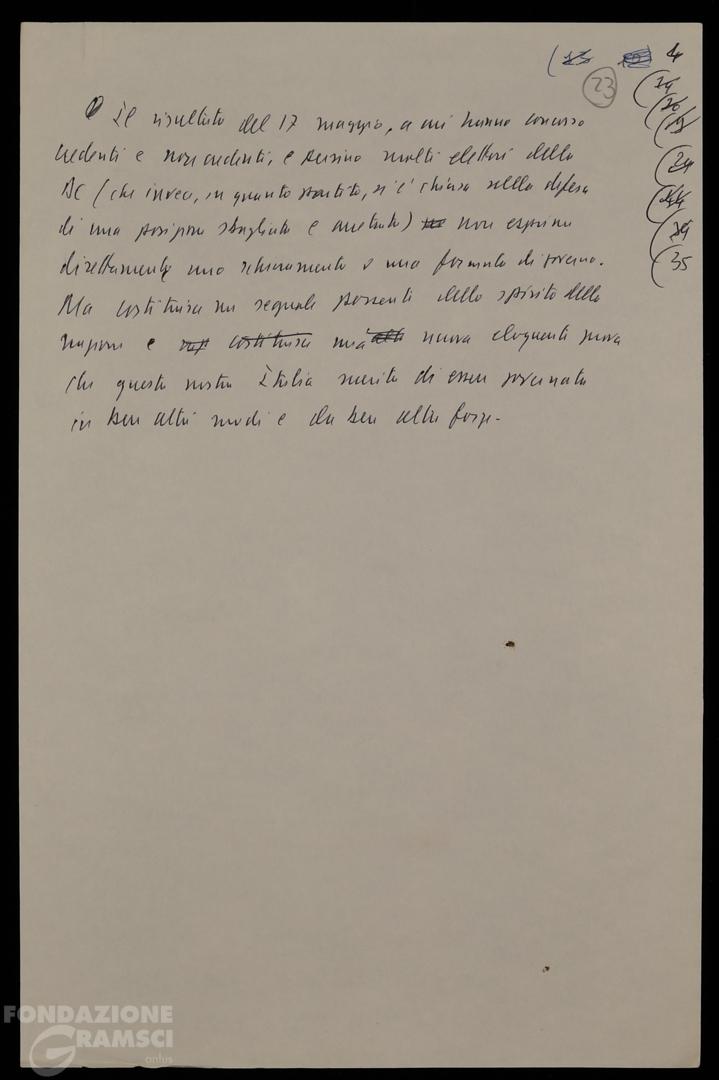 4
23
24
26
29
35
Il risultato del 17 maggio, a cui hanno concorso
credenti e non credenti, e persino molti elettori della
DC (che invece, in quanto partito, si è chiusa nella difesa
di una posizione sbagliata e arretrata) non esprime
direttamente uno schieramento o una formula di governo.
Ma costituisce un segnale possente dello spirito della
nazione e costituisce una nuova eloquente prova
che questa nostra Italia merita di essere governata
in ben altri modi e da ben altre forze.
FONDAZIONE
GRAMSCI
onlus